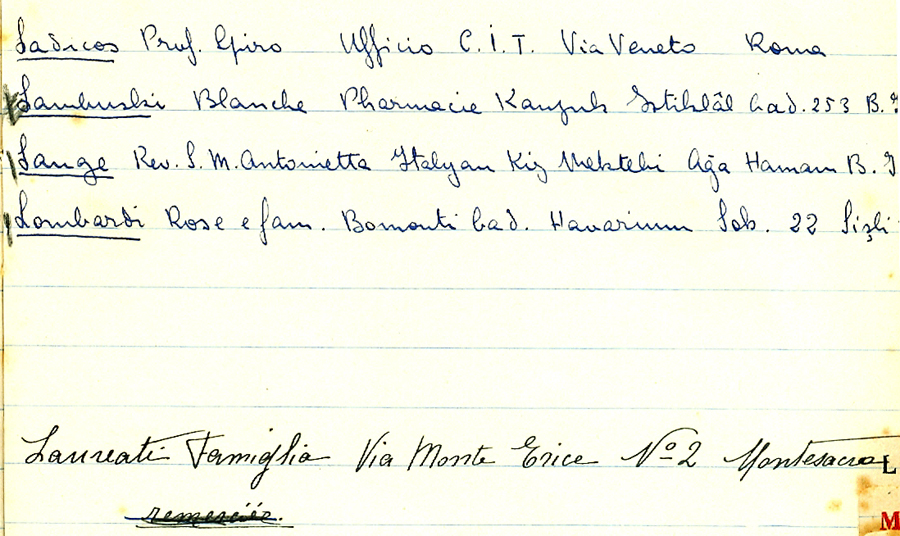 Ladicos Prof. Giro Ufficio C.I.T. Via Veneto Roma
Lambuski Blanche Pharmacie Kanzuk Istiklâl Cad. 253 B.
Lange Rev. S. M. Antonietta Italyan Kiz Mektebi Ağa Hamam B.
Lombardi Rose e fam. Bomonti Cad. Sok. 22 Şişli
Laureati Famiglia Via Monte Erice Nº 2 Montesacro
L
M